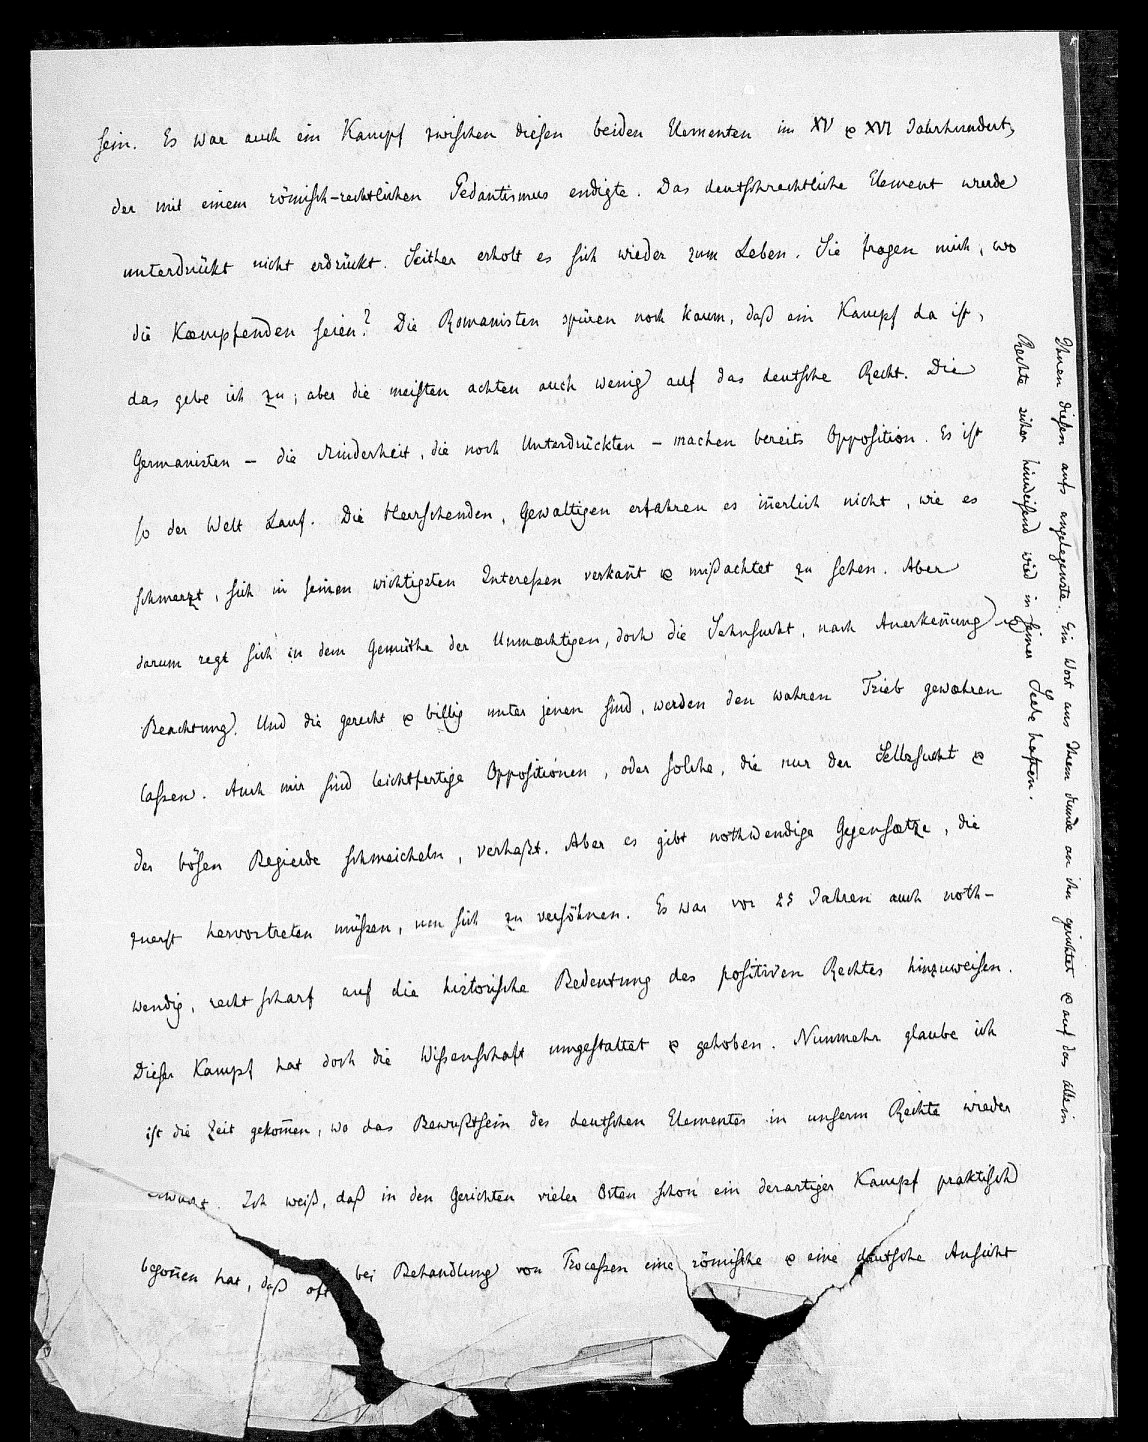 sein. Es war auch ein Kampf zwischen diesen beiden Elementen im XV & XVI Jahrhundert,
der mit einem römisch-rechtlichen Pedantismus endigte. Das deutschrechtliche Element wurde
unterdrükt nicht erdrükt. Seither erholt es sich wieder zum Leben. Sie fragen mich, wo
die Kæmpfenden seien? Die Romanisten spüren noch kaum, daß ein Kampf da ist,
das gebe ich zu; aber die meisten achten auch wenig auf das deutsche Recht. Die
Germanisten – die Minderheit, die noch Unterdrückten – machen bereits Opposition. Es ist
so der Welt Lauf. Die Herrschenden, Gewaltigen erfahren es iñerlich nicht, wie es
schmerzt, sich in seinen wichtigsten Interessen verkañt & mißachtet zu sehen. Aber
darum regt sich in dem Gemüthe der Unmæchtigen, doch die Sehnsucht, nach Anerkeñung &
Beachtung. Und die gerecht & billig unter jenen sind, werden den wahren Trieb gewæhren
lassen. Auch mir sind leichtfertige Oppositionen, oder solche, die nur der Selbstsucht &
der bösen Begierde schmeicheln, verhaßt. Aber es gibt nothwendige Gegensætze, die
zuerst hervortreten müssen, um sich zu versöhnen. Es war vor 25 Jahren auch noth-
wendig, recht scharf auf die historische Bedeutung des positiven Rechtes hinzuweisen.
Dieser Kampf hat doch die Wissenschaft umgestaltet & gehoben. Nunmehr glaube ich
ist die Zeit gekom̃en, wo das Bewußtsein des deutschen Elementes in unserm Rechte wieder
Ich weiß, daß in den Gerichten vieler Orten schon ein derartiger Kampf praktisch
begoñen hat, daß oft bei Behandlung von Processen eine römische & eine deutsche Ansicht
Ihnen diesen aufs angelegenste. Ein Wort aus Ihrem Munde an ihn gerichtet & auf das allein
Rechte sicher hinweisend wird in seiner Seele haften.